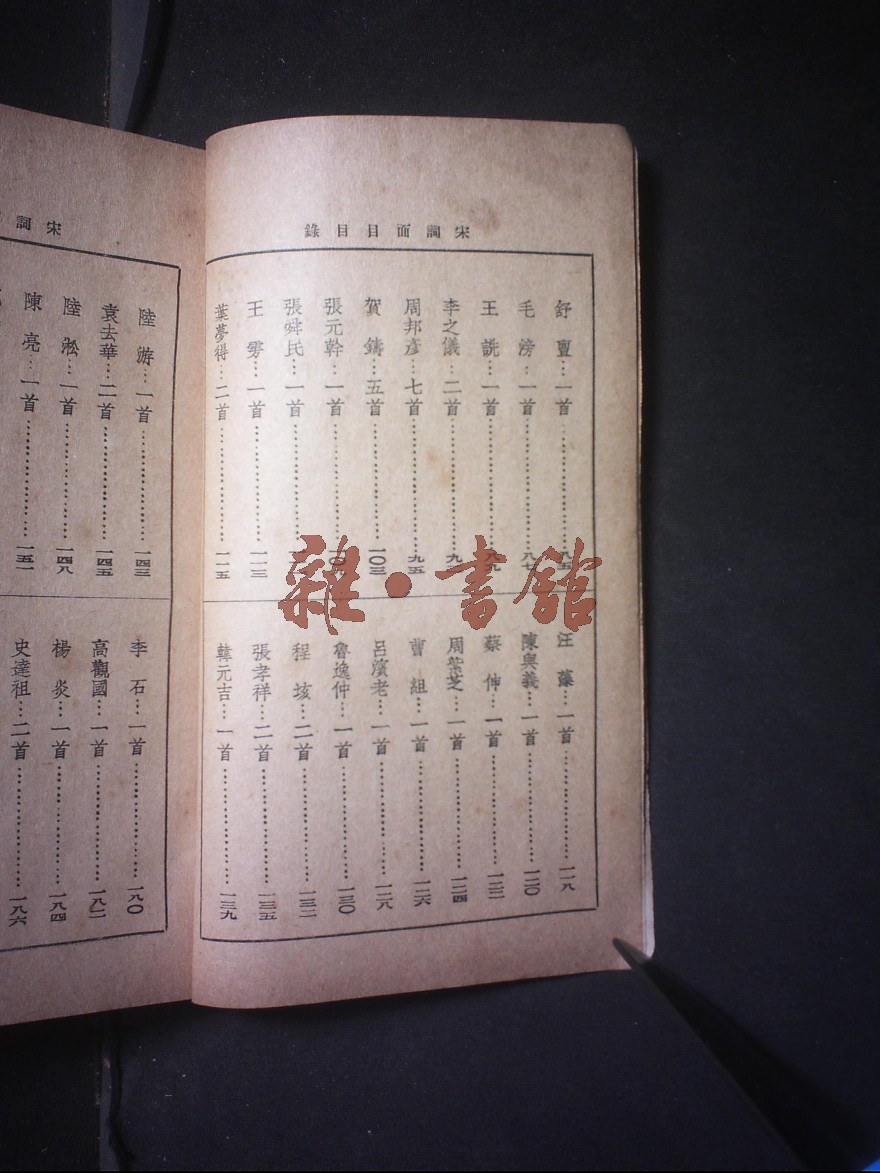 宋詞面目目錄
舒亶…一首…………八五
毛滂…一首…………八七
王詵…一首…………八九
李之儀…二首…………九三
周邦彥…七首…………九五
賀鑄…五首…………一〇三
張元幹…一首…………
張舜民…一首…………
王雱…一首…………一一三
葉夢得…二首…………一一五
汪藻…一首…………一一八
陳與義…一首…………一二〇
蔡伸…一首…………一二二
周紫芝…一首…………一二四
曹組…一首…………一二六
呂濱老…一首…………一二八
魯逸仲…一首…………一三〇
程垓…二首…………一三二
張孝祥…二首…………一三五
韓元吉…一首…………一三九
宋詞
陸游…一首…………一四三
袁去華…二首…………一四五
陸淞…一首…………一四八
陳亮…一首…………一五一
李石…一首…………一八〇
高觀國…一首…………一八二
楊炎…一首…………一八四
史達祖…二首…………一八六
雜·書館